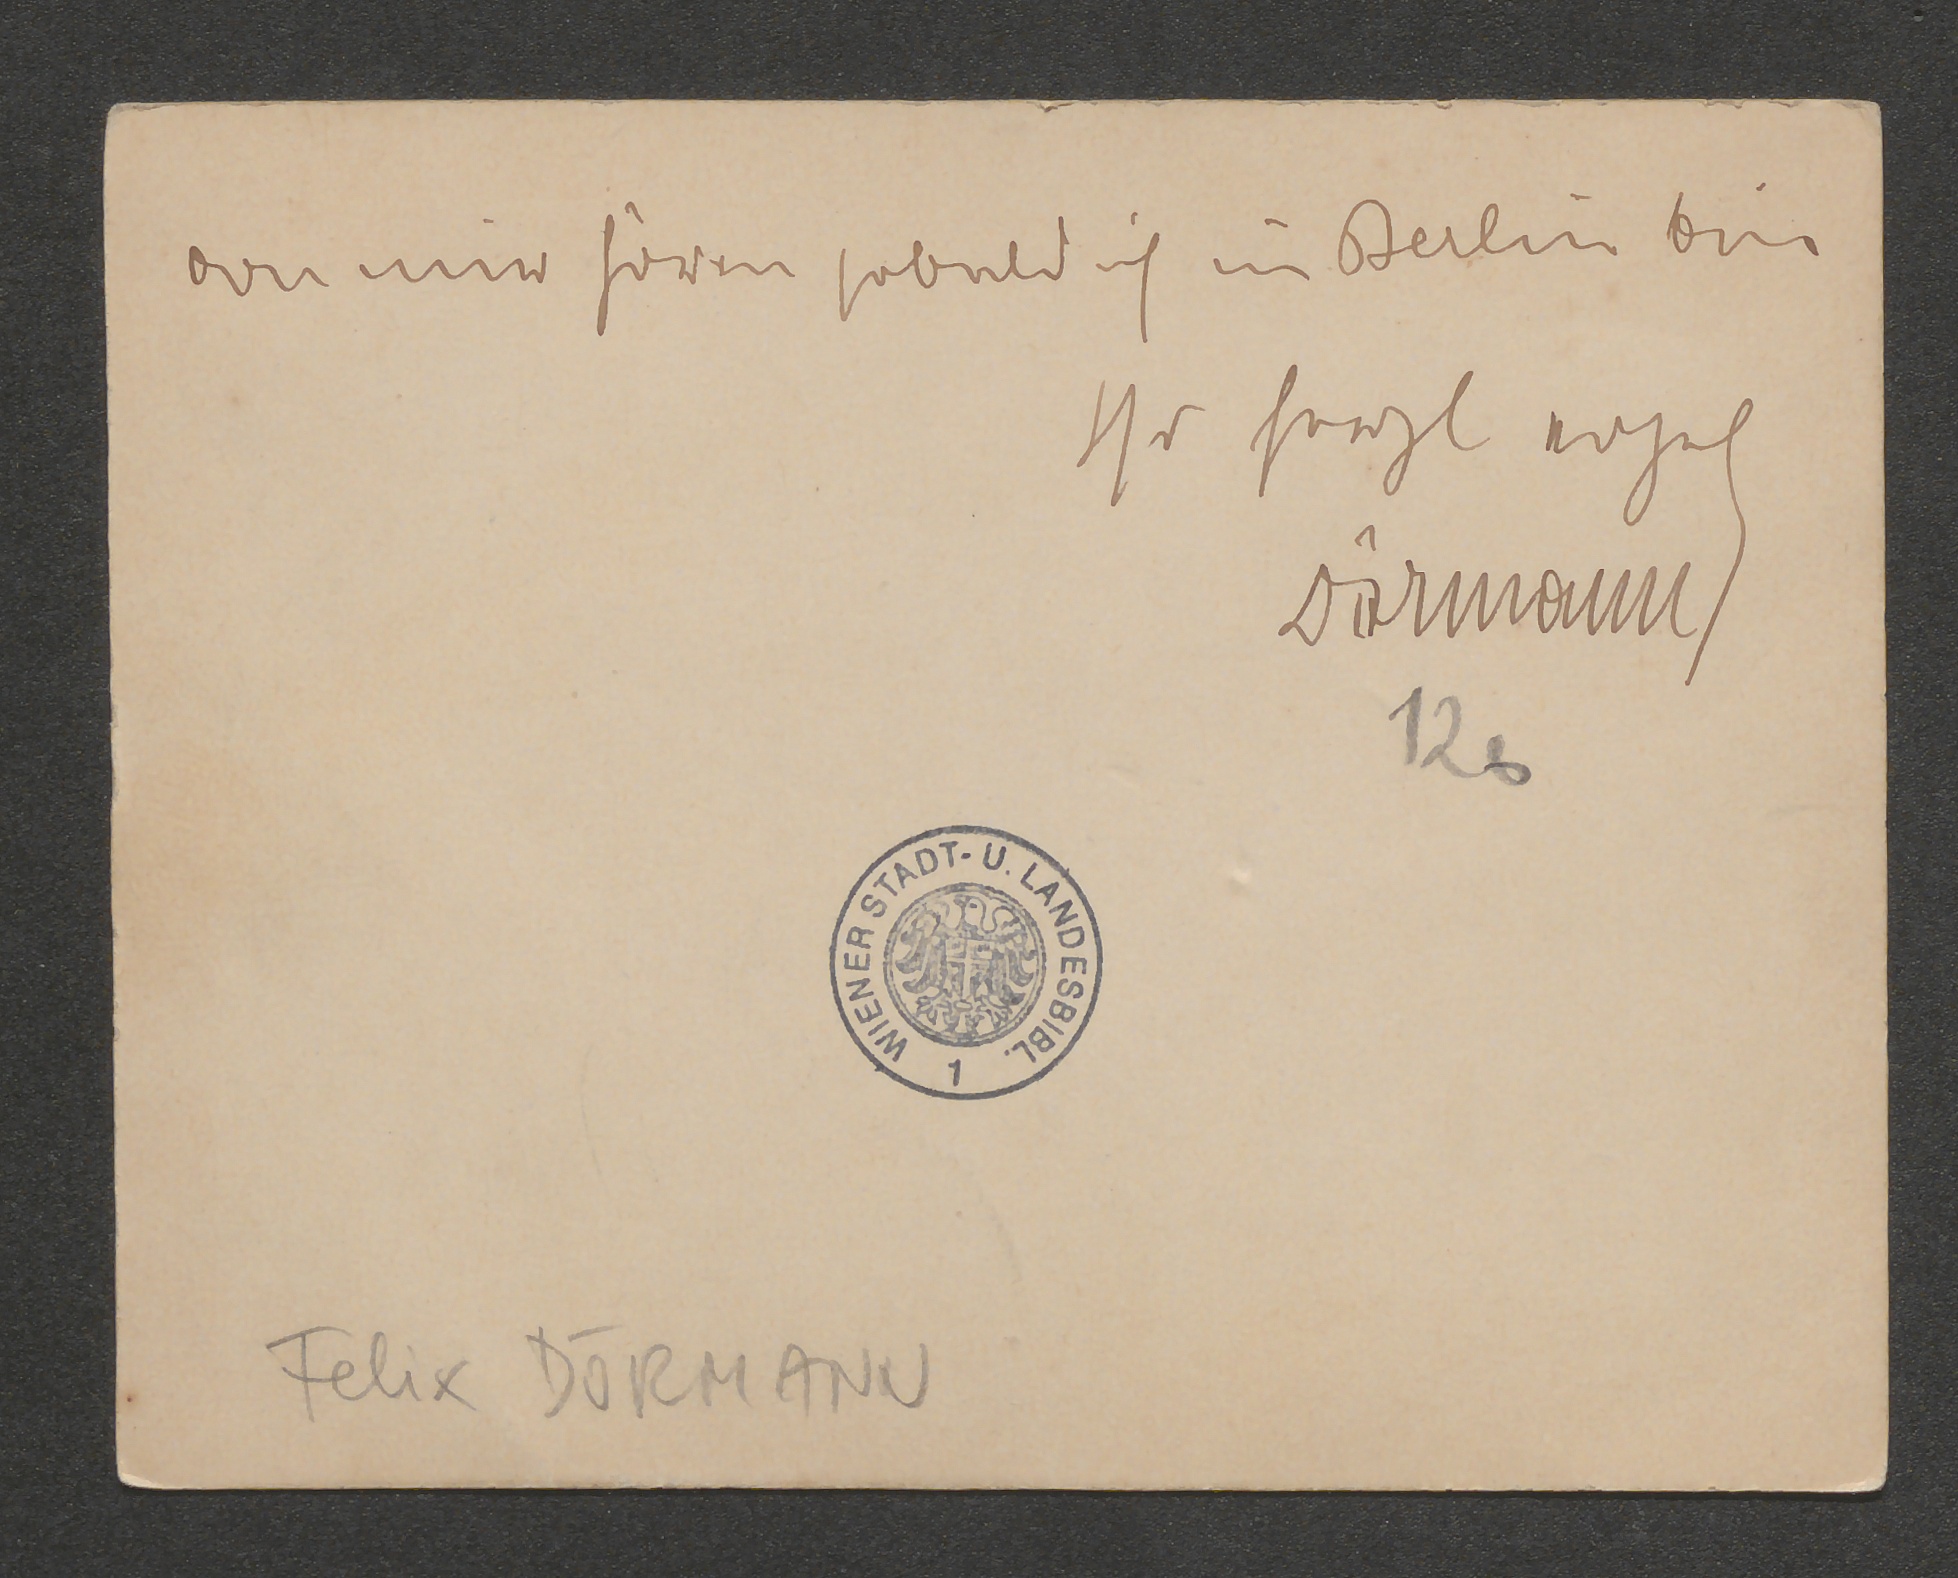 von mir hören sobald ich in Berlin bin
Ihr herzl ergeb
Dörmann
12
WIENER STADT- U. LANDESBIBL.
1
Felix DÖRMANN